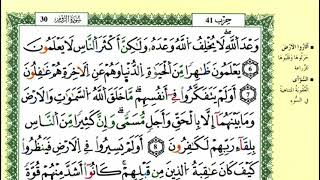 30 سُورَةُ الرُّومِ حزب 41
وَعْدَ اَللَّهِ لَا يُخْلِفُ اُللَّهُ وَعْدَهُۥ وَلَٰكِنَّ أَكْثَرَ اَلنَّاسِ لَا يَعْلَمُونَ
يَعْلَمُونَ ظَٰهِرًا مِّنَ اَلْحَيَوٰةِ اِلدُّنْيَا وَهُمْ عَنِ اِلَاخِرَةِ هُمْ غَٰفِلُونَ
أَوَلَمْ يَتَفَكَّرُواْ فِےٓ أَنفُسِهِم مَّا خَلَقَ اَللَّهُ اُلسَّمَٰوَٰتِ وَالَارْضَ
وَمَا بَيْنَهُمَآ إِلَّا بِالْحَقِّ وَأَجَلٍ مُّسَمّيً وَإِنَّ كَثِيرًا مِّنَ اَلنَّاسِ
بِلِقَآءِ رَبِّهِمْ لَكَٰفِرُونَ أَوَلَمْ يَسِيرُواْ فِے اِلَارْضِ فَيَنظُرُواْ
كَيْفَ كَانَ عَٰقِبَةُ اُلذِينَ مِن قَبْلِهِمْ كَانُوٓاْ أَشَدَّ مِنْهُمْ قُوَّةً
أَثَارُوا الارْضَ
حرثوها وقلبوها
للزراعة
السُّوأى
العقوبة المتناهية
في السوء